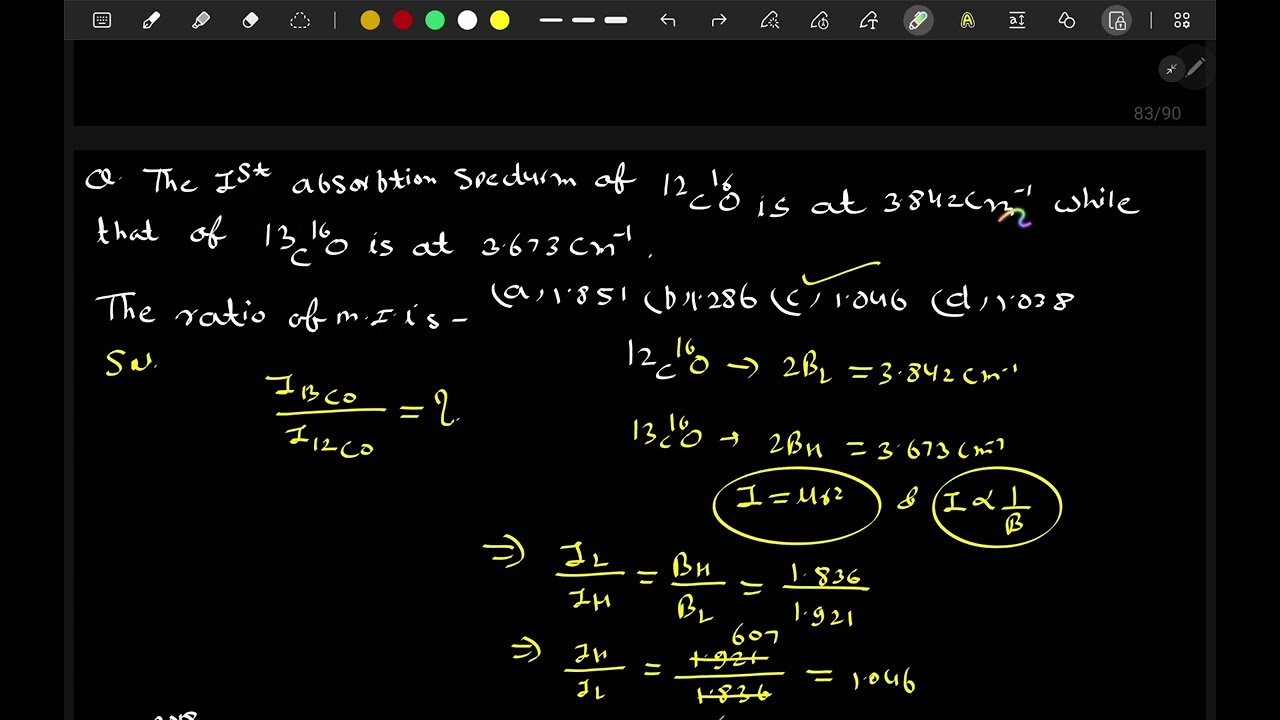 83/90
Q. The Ist absorbtion Specturm of 12C16O is at 3.842 cm-1 while
that of 13C16O is at 3.673 cm-1.
The ratio of m.I. is - (a) 1.851 (b) 1.286 (c) 1.046 (d) 1.038
Sol.
12C16O → 2BL = 3.842 cm-1
I13CO / I12CO = ?
13C16O → 2BH = 3.673 cm-1
I = μr2 & I ∝ 1/B
⇒ IL/IH = BH/BL = 1.836/1.921
607
⇒ IH/IL = 1.921/1.836 = 1.046